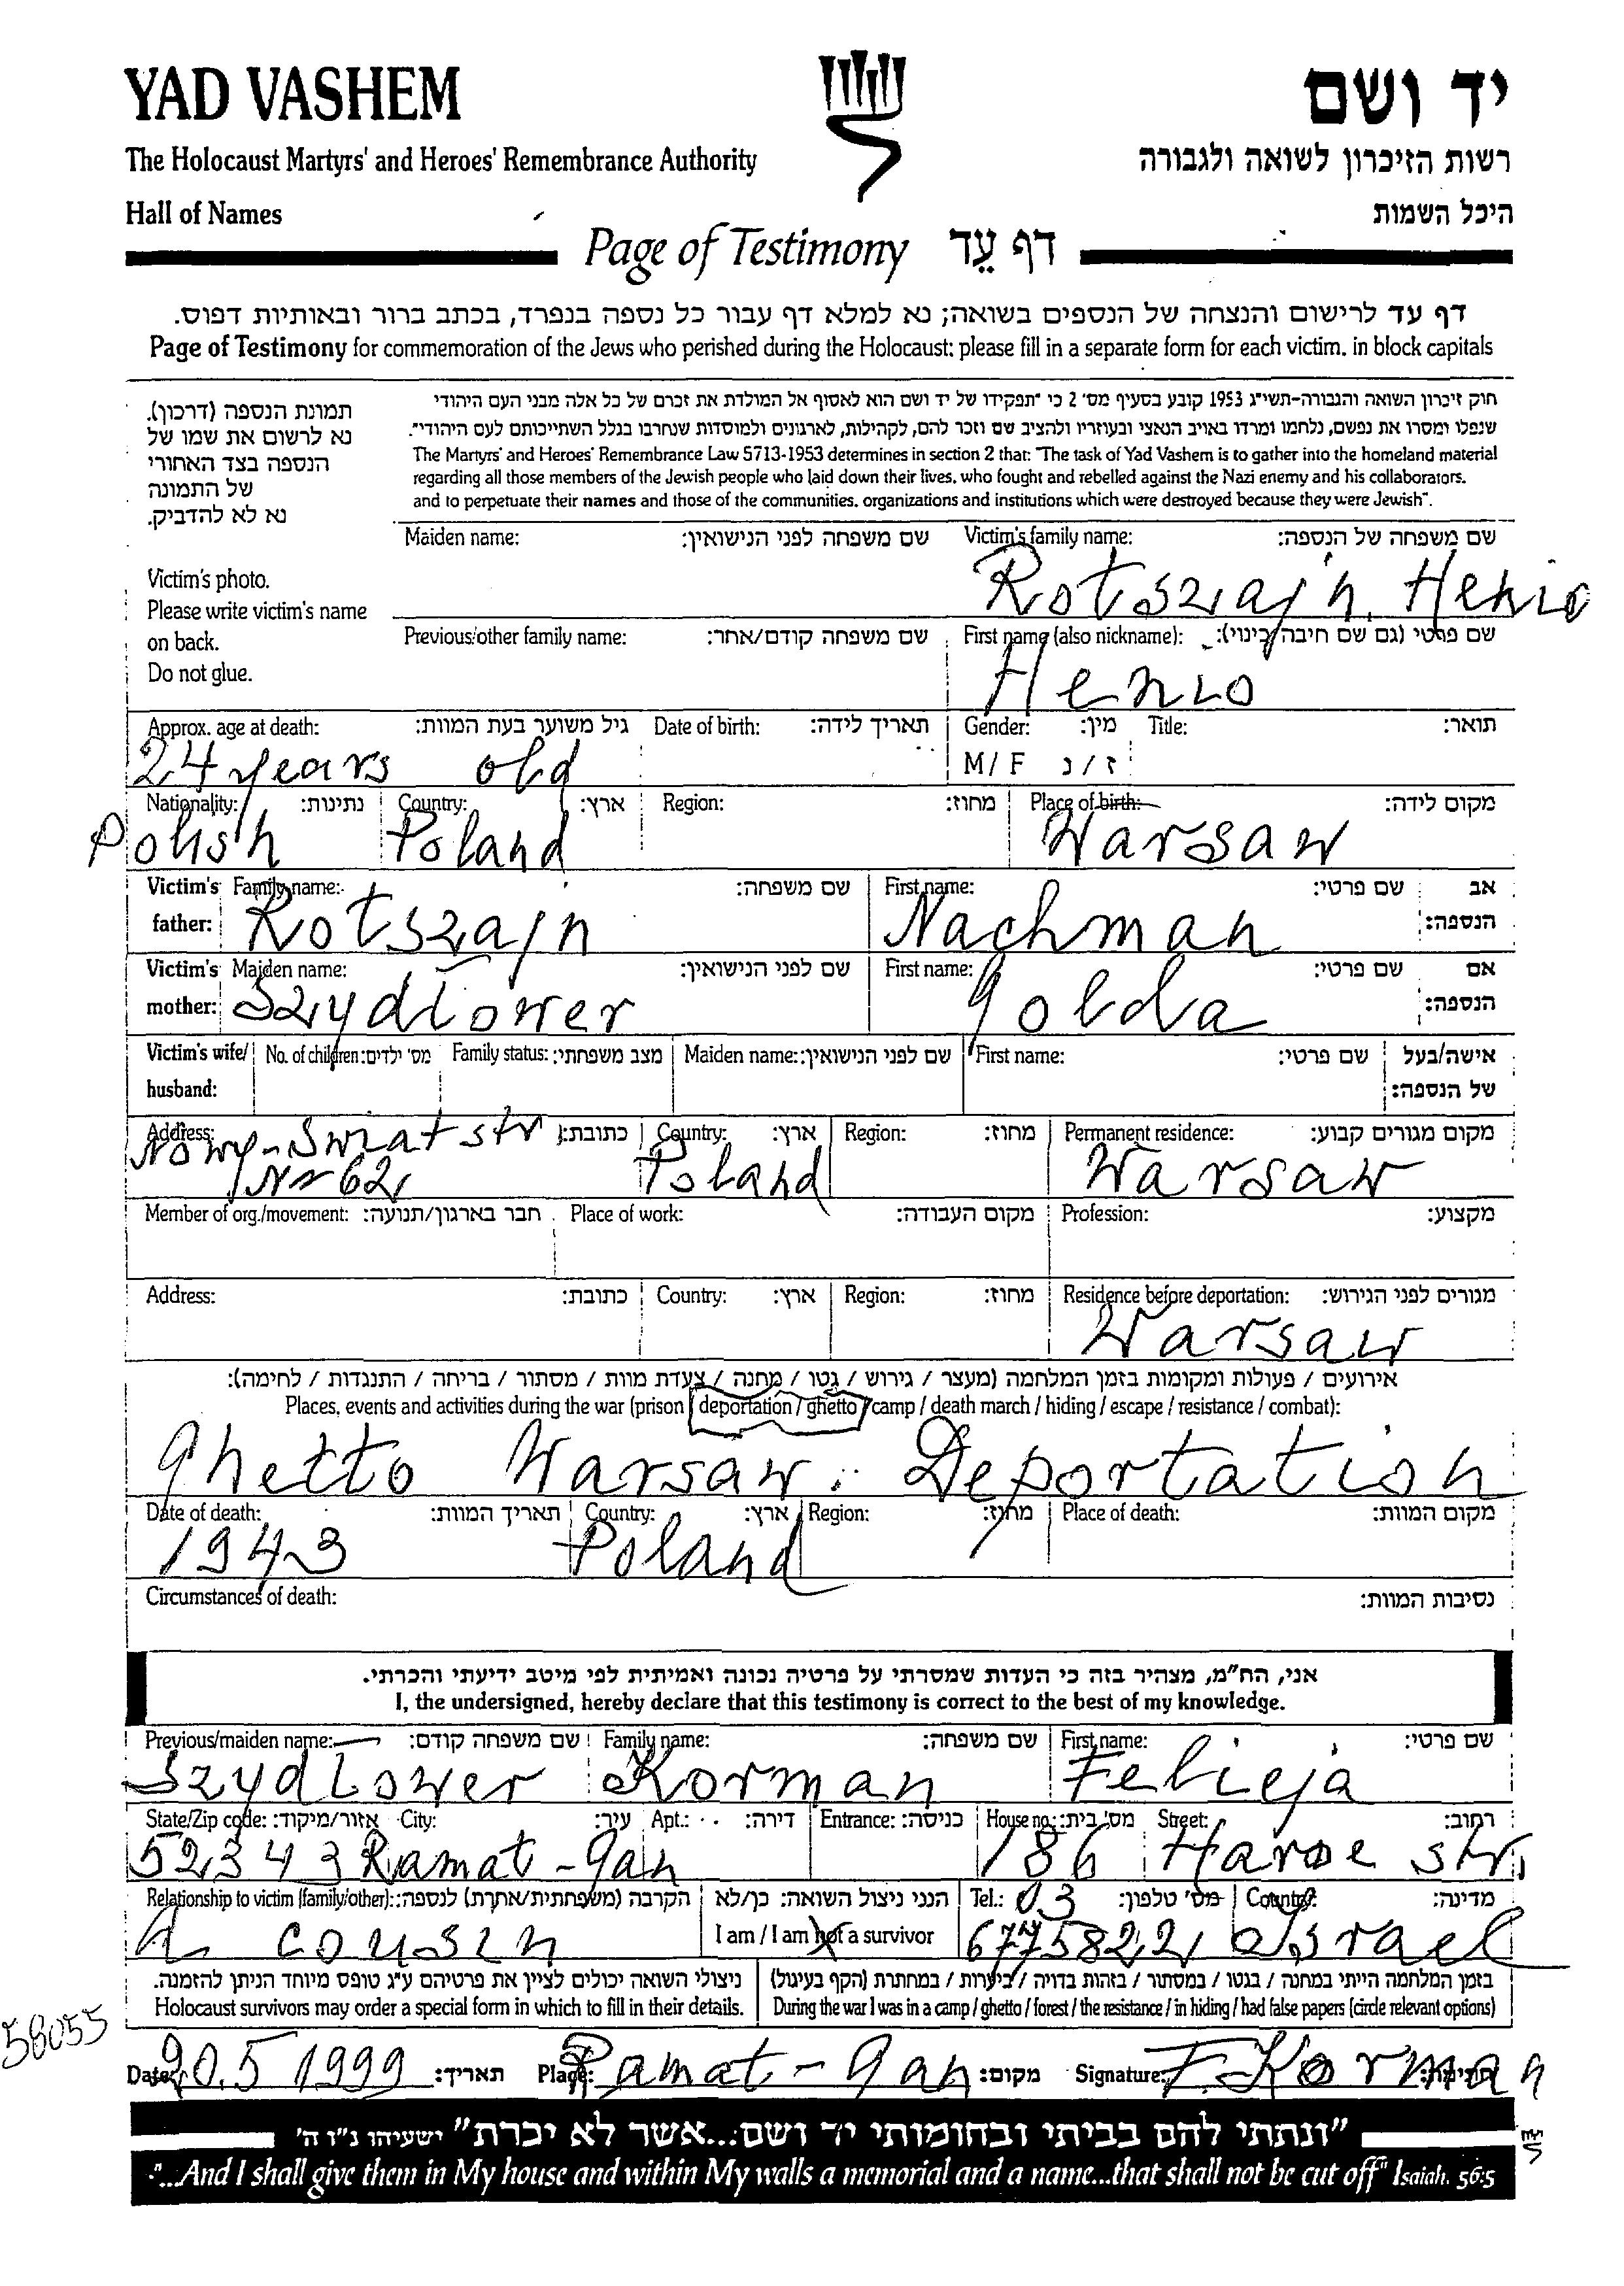 YAD VASHEM יד ושם
The Holocaust Martyrs' and Heroes' Remembrance Authority רשות הזיכרון לשואה ולגבורה
Hall of Names היכל השמות
Page of Testimony דף עֵד
דף עד לרישום והנצחה של הנספים בשואה; נא למלא דף עבור כל נספה בנפרד, בכתב ברור ובאותיות דפוס.
Page of Testimony for commemoration of the Jews who perished during the Holocaust; please fill in a separate form for each victim, in block capitals
תמונת הנספה (דרכון).
נא לרשום את שמו של
הנספה בצד האחורי
של התמונה
נא לא להדביק.
Victim's photo.
Please write victim's name
on back.
Do not glue.
חוק זיכרון השואה והגבורה-תשי"ג 1953 קובע בסעיף מס' 2 כי "תפקידו של יד ושם הוא לאסוף אל המולדת את זכרם של כל אלה מבני העם היהודי
שנפלו ומסרו את נפשם, נלחמו ומרדו באויב הנאצי ובעוזריו ולהציב שם וזכר להם, לקהילות, לארגונים ולמוסדות שנחרבו בגלל השתייכותם לעם היהודי".
The Martyrs' and Heroes' Remembrance Law 5713-1953 determines in section 2 that: "The task of Yad Vashem is to gather into the homeland material
regarding all those members of the Jewish people who laid down their lives, who fought and rebelled against the Nazi enemy and his collaborators,
and to perpetuate their names and those of the communities, organizations and institutions which were destroyed because they were Jewish".
Maiden name: שם משפחה לפני הנישואין: Victim's family name: שם משפחה של הנספה:
Rotszajn, Henio
Previous/other family name: שם משפחה קודם/אחר: First name (also nickname): שם פרטי (גם שם חיבה/כינוי):
Henio
Approx. age at death: גיל משוער בעת המוות: Date of birth: תאריך לידה: Gender: מין: Title: תואר:
24 years old M / F ז / נ
Nationality: נתינות: Country: ארץ: Region: מחוז: Place of birth: מקום לידה:
Polish Poland Warsaw
Victim's father: Family name: שם משפחה: First name: שם פרטי: אב הנספה:
Rotszajn Nachman
Victim's mother: Maiden name: שם לפני הנישואין: First name: שם פרטי: אם הנספה:
Szydlower Golda
Victim's wife/ husband: No. of children: מס' ילדים: Family status: מצב משפחתי: Maiden name: שם לפני הנישואין: First name: שם פרטי: אישה/בעל של הנספה:
Address: כתובת: Country: ארץ: Region: מחוז: Permanent residence: מקום מגורים קבוע:
Nowy-Swiat str
Nr 62 Poland Warsaw
Member of org./movement: חבר בארגון/תנועה: Place of work: מקום העבודה: Profession: מקצוע:
Address: כתובת: Country: ארץ: Region: מחוז: Residence before deportation: מגורים לפני הגירוש:
Warsaw
אירועים / פעולות ומקומות בזמן המלחמה (מעצר / גירוש / גטו / מחנה / צעדת מוות / מסתור / בריחה / התנגדות / לחימה):
Places, events and activities during the war (prison / deportation / ghetto / camp / death march / hiding / escape / resistance / combat):
Ghetto Warsaw. Deportation
Date of death: תאריך המוות: Country: ארץ: Region: מחוז: Place of death: מקום המוות:
1943 Poland
Circumstances of death: נסיבות המוות:
אני, הח"מ, מצהיר בזה כי העדות שמסרתי על פרטיה נכונה ואמיתית לפי מיטב ידיעתי והכרתי.
I, the undersigned, hereby declare that this testimony is correct to the best of my knowledge.
Previous/maiden name: שם משפחה קודם: Family name: שם משפחה: First name: שם פרטי:
Szydlower Korman Felicja
State/Zip code: אזור/מיקוד: City: עיר: Apt.: דירה: Entrance: כניסה: House no.: מס' בית: Street: רחוב:
52343 Ramat-Gan 186 Haroe str.
Relationship to victim (family/other): הקרבה (משפחתית/אחרת) לנספה: הנני ניצול השואה: כן/לא Tel.: מס' טלפון: Country: מדינה:
A cousin I am / I am not a survivor 03 6775822 Israel
ניצולי השואה יכולים לציין את פרטיהם ע"ג טופס מיוחד הניתן להזמנה. בזמן המלחמה הייתי במחנה / בגטו / במסתור / בזהות בדויה / ביערות / במחתרת (הקף בעיגול)
Holocaust survivors may order a special form in which to fill in their details. During the war I was in a camp / ghetto / forest / the resistance / in hiding / had false papers (circle relevant options)
58055
Date: 20.5 1999 תאריך: Place: Ramat-Gan מקום: Signature: F. Korman חתימה:
"ונתתי להם בביתי ובחומותי יד ושם...אשר לא יכרת" ישעיהו נ"ו ה'
"...And I shall give them in My house and within My walls a memorial and a name...that shall not be cut off" Isaiah. 56:5